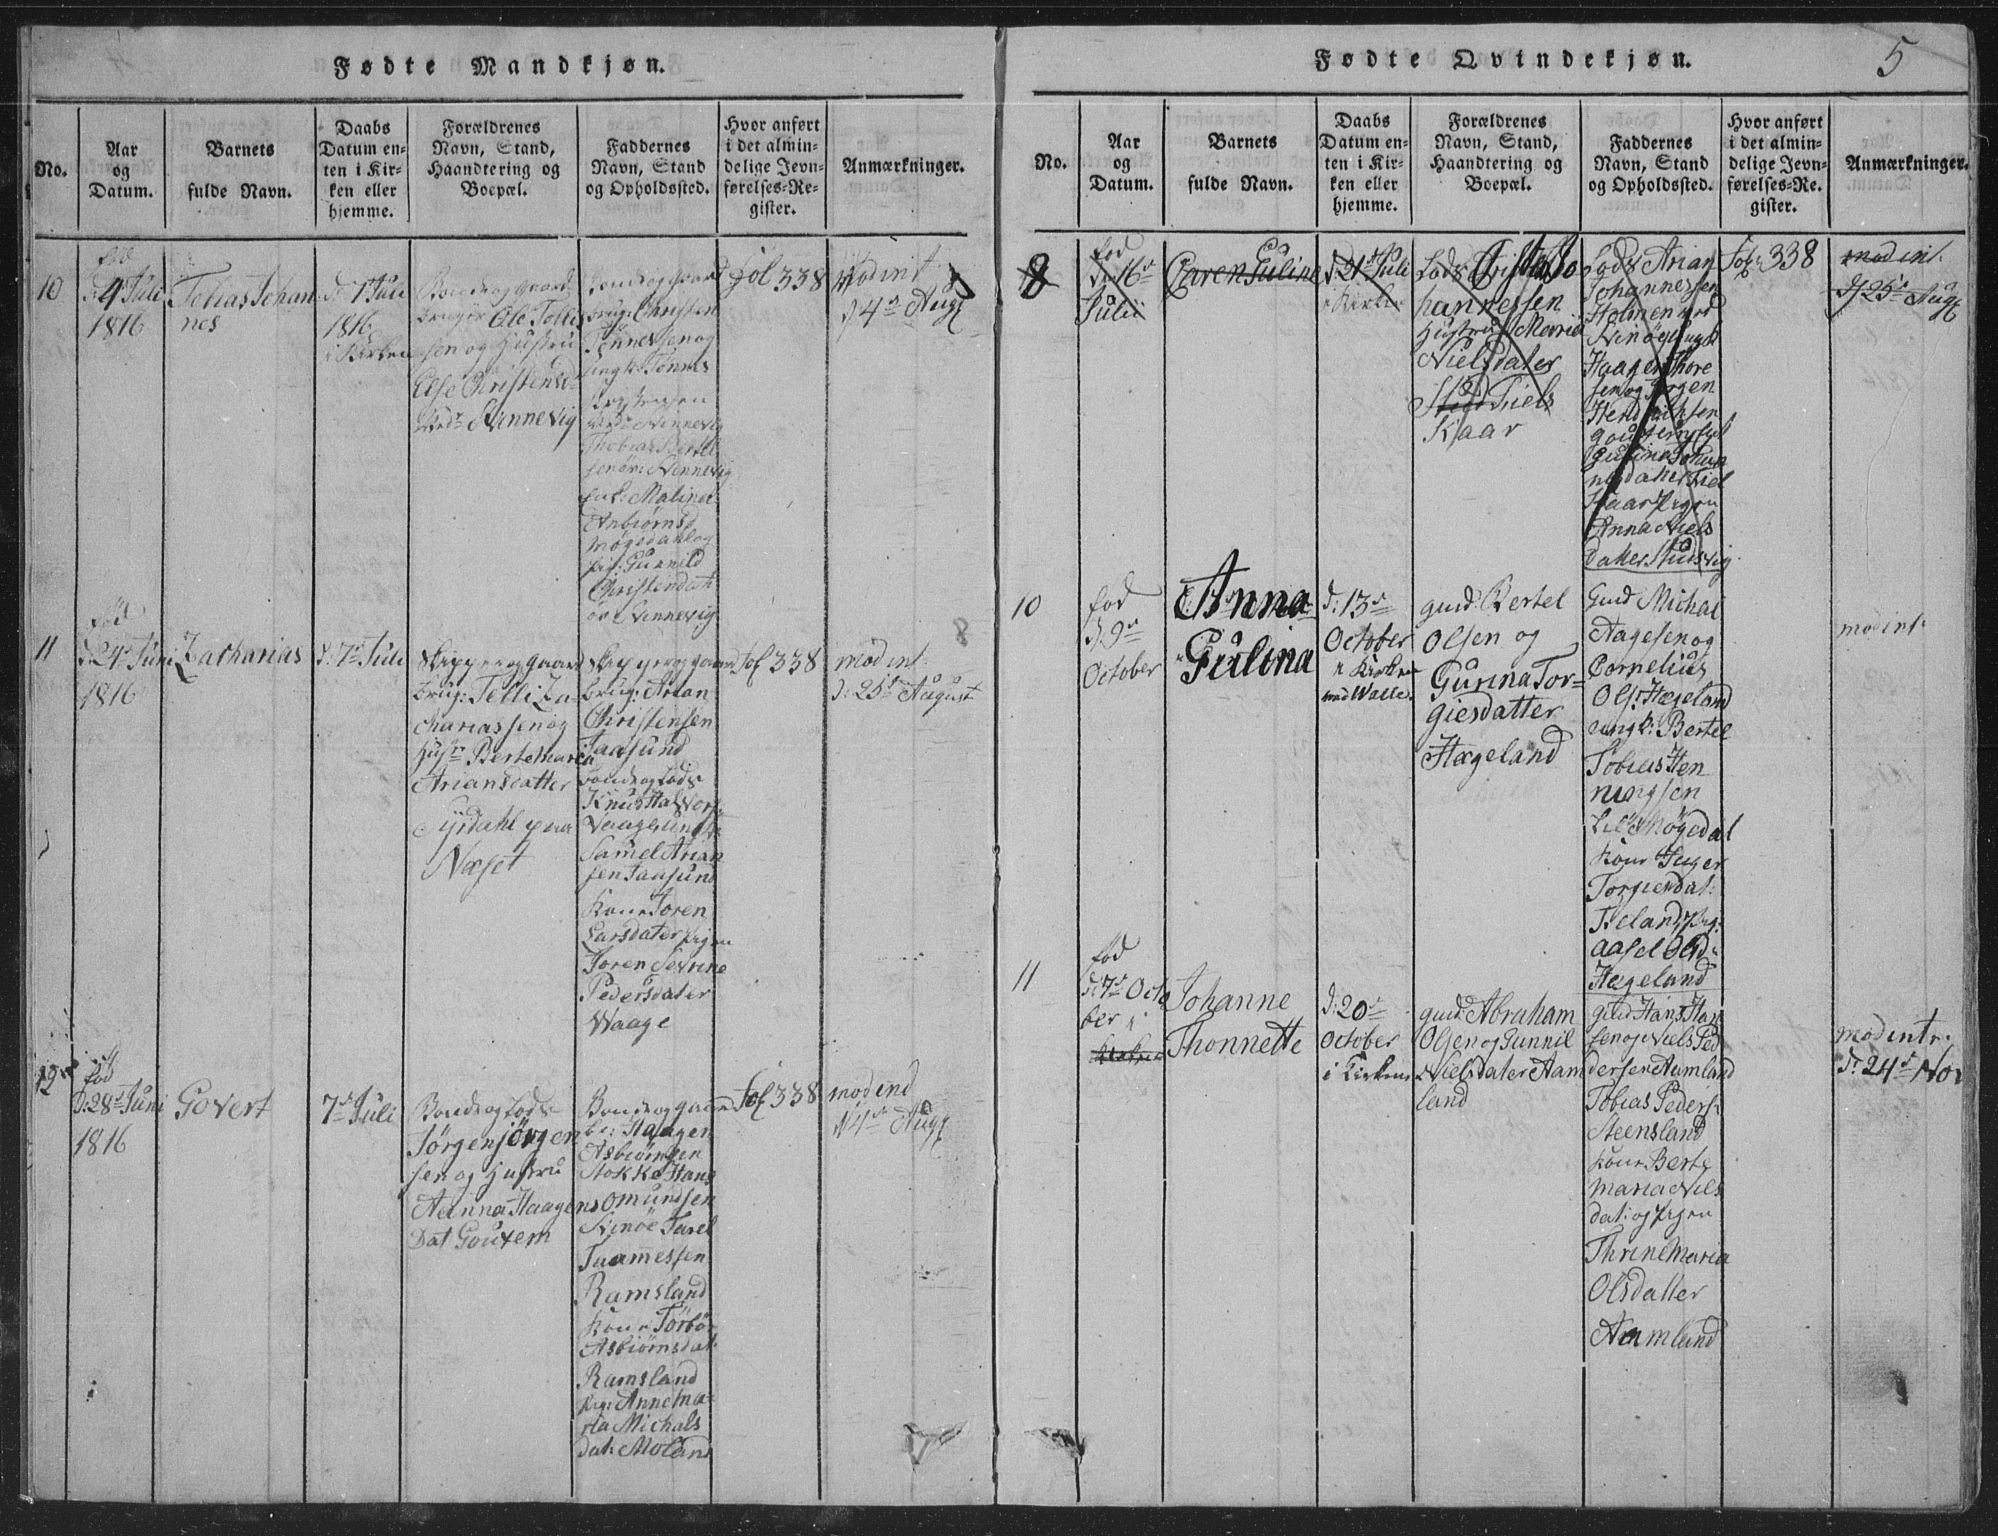 Fødte Mandkjøn.
No.
Aar
og
Datum.
Barnets
fulde Navn.
Daabs
Datum en-
ten i Kir-
ken eller
hjemme.
Forældrenes
Navn, Stand,
Haandtering og
Boepæl.
Faddernes
Navn, Stand
og Opholdssted.
Hvor anført
i det almin-
delige Jevn-
førelses-Re-
gister.
Anmærkninger.
10
fød
d: 4 Juli
1816
Tobias Johan
nes
d: 1 Juli
1816
i Kirken
Bonde og gaard
bruger Ole Tollis
sen og Hustru
Else Christensd
Ninnevig
Bonde og gaard
brug: Christen
Tønnessen og
ungk: Tønnes
Ninnevig
Thobias Bertel
sen Ninnevig
Maline
Anbiørnsd
Møgedahl og
pig: Gunnild
Christendat
Ninnevig
Fol 338
mod int
d 4de Aug
11
fød
d: 24 Juni
1816
Zacharias
d: 7de Juli
Skipper og gaard
brug: Telli Za
chariassen og
Hustr Bertemarea
Ariansdatter
Syrdahl paa
Næset
Skipper og gaard
brug: Arian
Christensen
Taasund
bonde og lods
Knud Halvors
Vaage ungk:
Samel Arian
sen Taasund
Kone Joren
Larsdater pigen
Joren Sevrine
Pedersdater
Waage
Fol 338
mod int:
d: 25de August
8
12
fød
d: 28de Juni
1816
Govert
7de Juli
Bonde og Lods
Jørgen Jørgen
sen og Hustru
Aanna Haagens
Dat Goutem
Bonde og gaard
br: Haagen
Asbiørnsen
Stokke Hans
Omundsen
Ninöe Tarel
Taamessen
Ramsland
Kone Törbör
Asbiørnsdat:
Ramsland
pig: Annema-
ria Michals
dat: Moland
Fol 338
mod ind
d 4de Aug
Fødte Qvindekjøn.
5
No.
Aar
og
Datum.
Barnets
fulde Navn.
Daabs
Datum en-
ten i Kir-
ken eller
hjemme.
Forældrenes
Navn, Stand,
Haandtering og
Boepæl.
Faddernes
Navn, Stand
og Opholdssted.
Hvor anført
i det almin-
delige Jevn-
førelses-Re-
gister.
Anmærkninger.
8
fød
d: 16de
Julii
Caren Guline
d 21de Juli
i Kirken
Lods Crist Jo
hannessen
Hustru Maria
Nielsdater
Kaar
Lods Arian
Johannessen
Holmen ved
Ninöe ungk
Haagen Thore
sen og Jørgen
Hendrichsen
Guline Johan
nesdatter
Kaar Pigen
Anna Niels
datter Studsvig
Fol: 338
mod int.
d 25de Aug
10
fød
d. 9de
October
Anna
Gulina
d: 13de
October
i Kirken
med Walle
gmd. Bertel
Olsen og
Gunna Tor-
giesdatter
Hægeland
Gmd Michal
Aagesen og
Cornelius
Ols: Hægeland
ungk: Bertel
Tobias Hen
ningsen
Lille Møgedal
Kone Inger
Torgiesdat:
Fieland, pig:
Aasel Olsd:
Hægeland
mod int:
11
fød
d: 7de Octo
ber
Johanne
Thonnette
d: 20de
October
i Kirken
gmd: Abraham
Olsen og Gunnil
Nielsdater Aam
land
gmd Hans Han
sen og Niels Ped
dersen Aamland
Tobias Peders:
Steensland
Kone Berte
Maria Niels
dat: og pigen
Thrine Maria
Olsdatter
Aamland
mod int:
d: 24de Nov